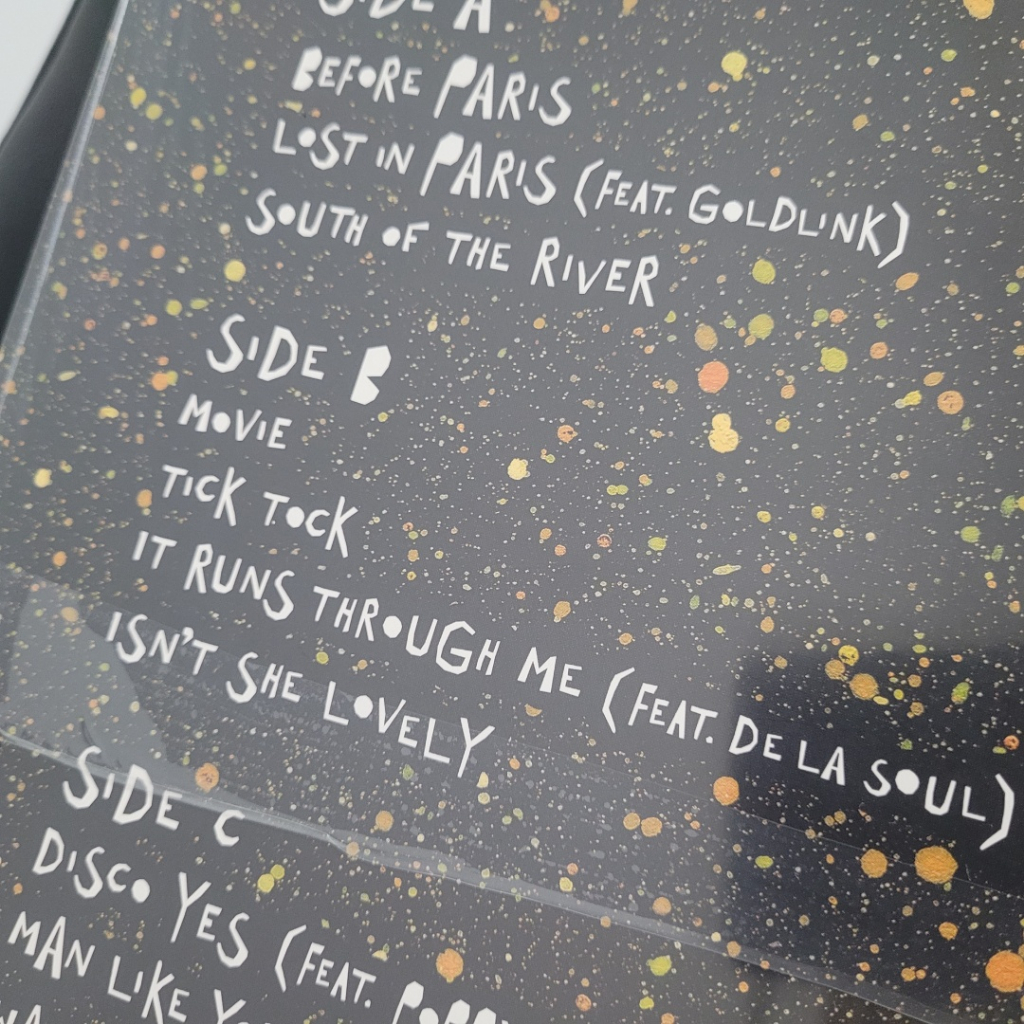 SIDE A
BEFORE PARIS
LOST IN PARIS (FEAT. GOLDLINK)
SOUTH OF THE RIVER
SIDE B
MOVIE
TICK TOCK
IT RUNS THROUGH ME (FEAT. DE LA SOUL)
ISN'T SHE LOVELY
SIDE C
DISCO YES (FEAT.
MAN LIKE